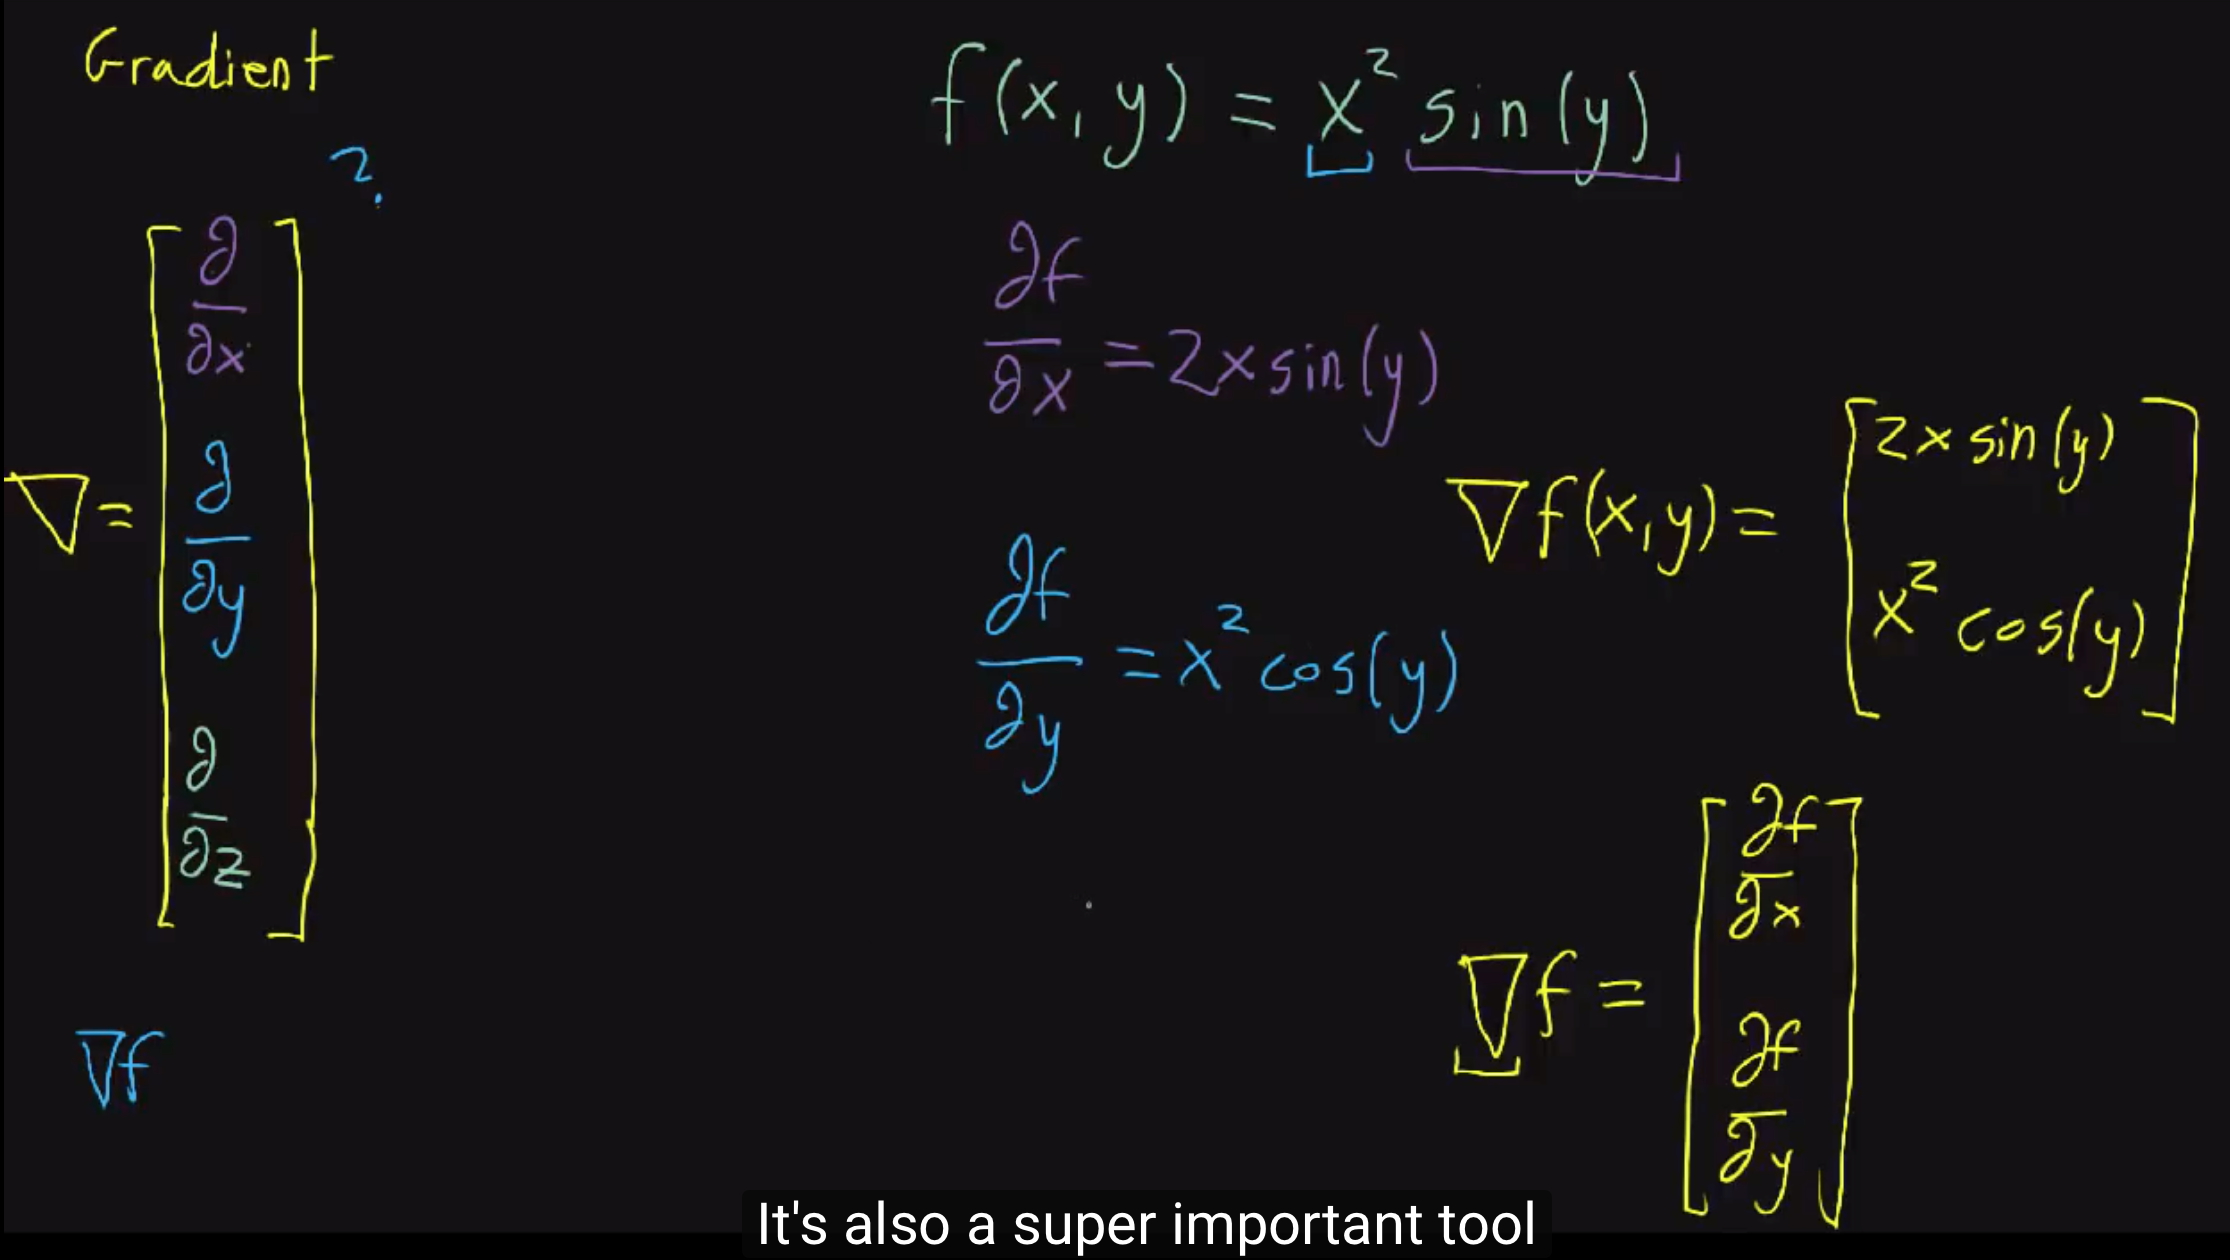 Gradient
?
∇ = [ ∂/∂x
∂/∂y
∂/∂z ]
∇f
f(x, y) = x² sin(y)
∂f/∂x = 2x sin(y)
∂f/∂y = x² cos(y)
∇f(x, y) = [ 2x sin(y)
x² cos(y) ]
∇f = [ ∂f/∂x
∂f/∂y ]
It's also a super important tool